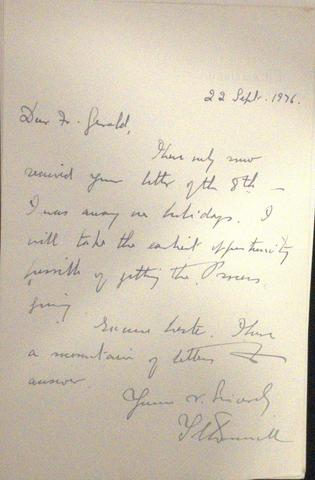 22 Sept. 1976.
Dear Fr. Gerald,
I have only now
received your letter of the 8th –
I was away on holidays. I
will take the earliest opportunity
possible of getting the Process
going.
Excuse haste. I have
a mountain of letters to
answer.
Yours v. sincerely